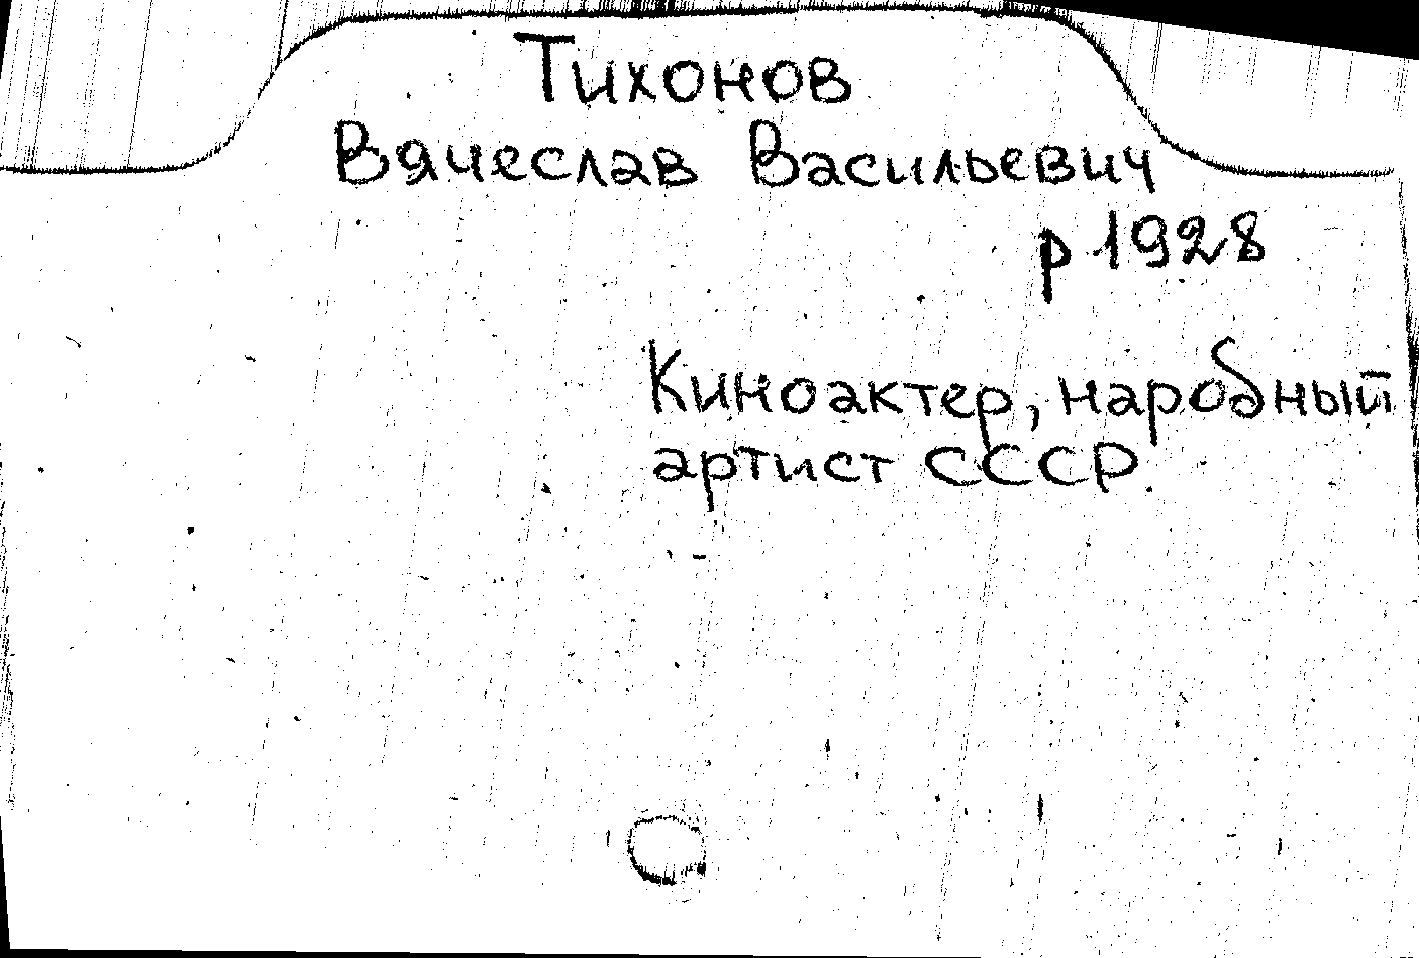 Тихонов
Вячеслав Васильевич
р 1928
Киноактер, народный
артист СССР